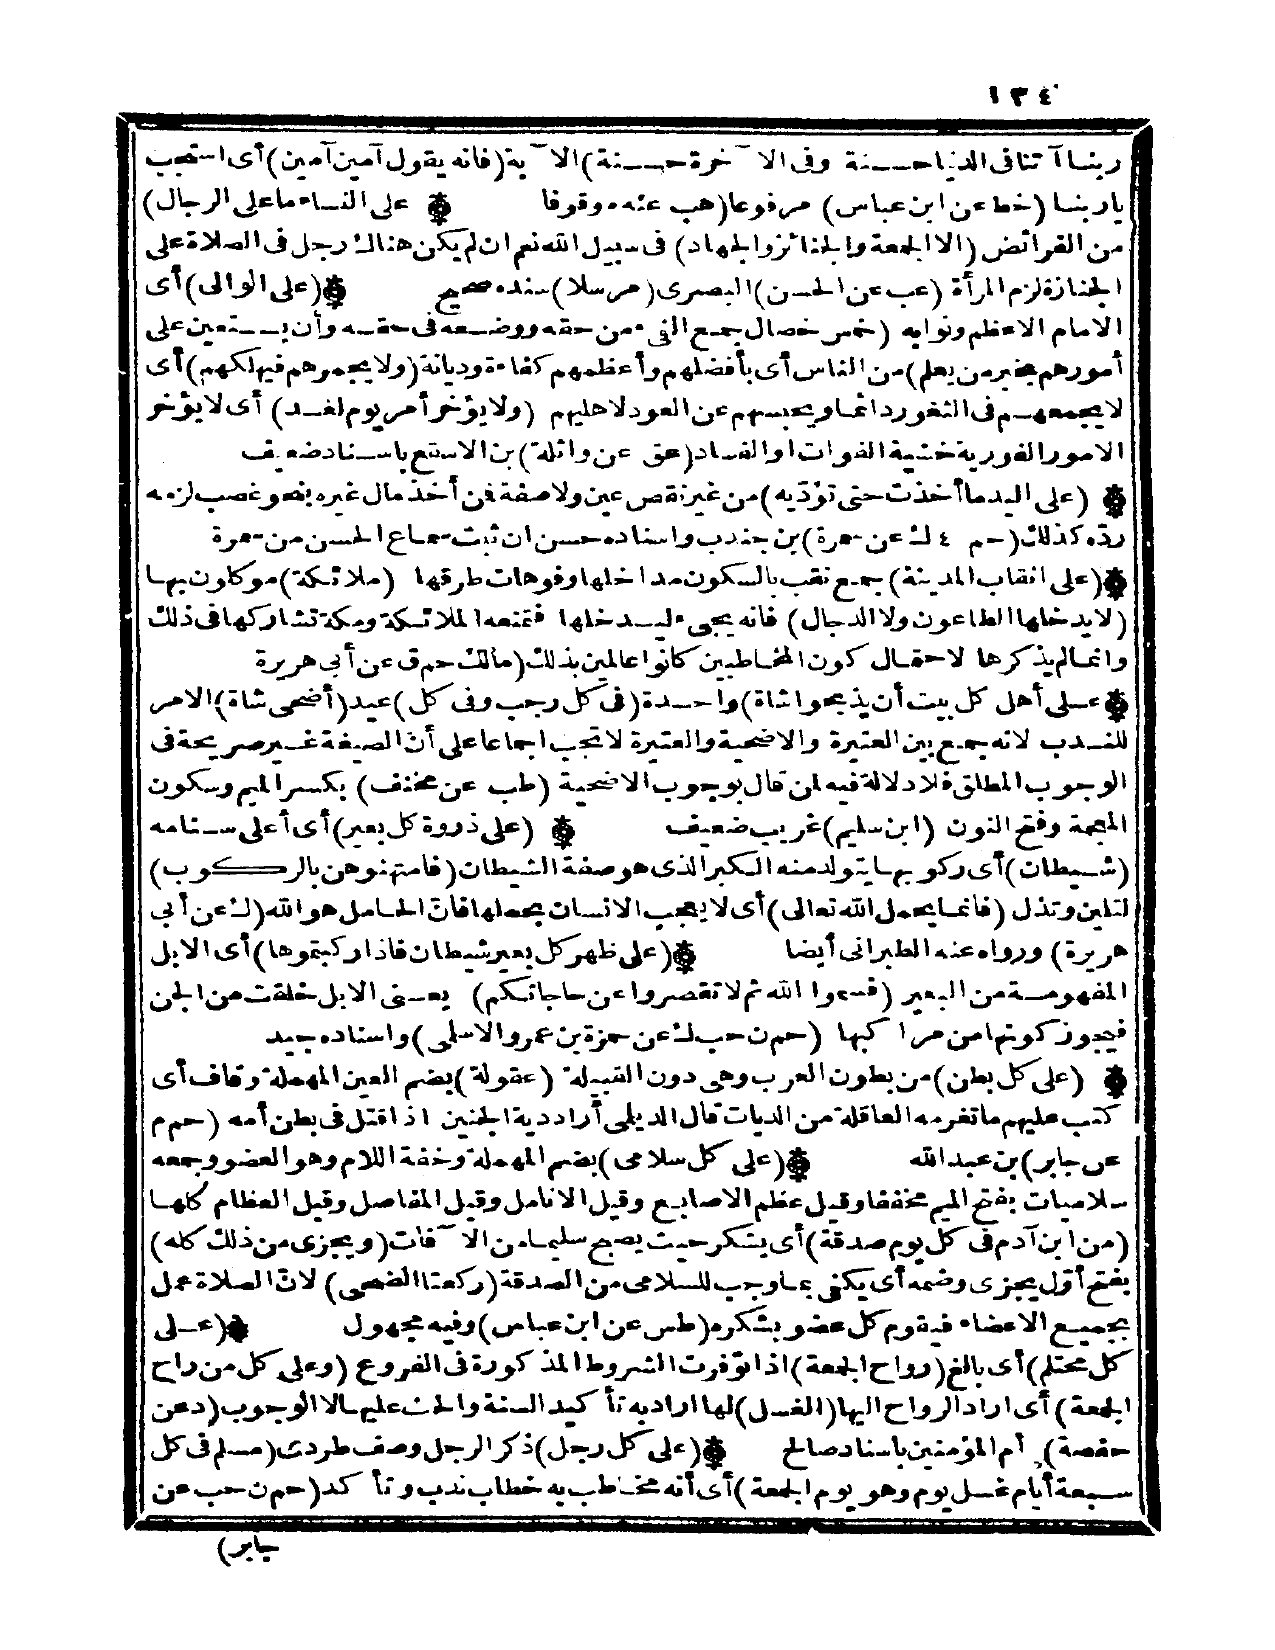 ١٣٤
ربنا آتنا فى الدنيا حسنة وفى الآخرة حسنة) الآية (فانه يقول آمين آمين) أى استجب
ياربنا (خط عن ابن عباس) مرفوعا (هب عنه موقوفا ۞ على النساء ما على الرجال)
من الفرائض (الا الجمعة والجنائز والجهاد) فى سبيل الله نعم ان لم يكن هناك رجل فى الصلاة على
الجنازة لزم المرأة (عب عن الحسن) البصرى (مرسلا) سنده صحيح ۞ (على الوالى) أى
الامام الاعظم ونوابه (خمس خصال جمع الفىء من حقه ووضعه فى حقه وأن يستعين على
أمورهم بخير من يعلم) من الناس أى بأفضلهم وأعظمهم كفاءة وديانة (ولا يجمرهم فيهلكهم) أى
لا يجمعهم فى الثغور دائما ويحبسهم عن العود لاهليهم (ولا يؤخر أمر يوم لغد) أى لا يؤخر
الامور الفورية خشية الفوات او الفساد (عق عن واثلة) بن الاسقع باسناد ضعيف
۞ (على اليد ما أخذت حتى تؤديه) من غير نقص عين ولا صفة فمن أخذ مال غيره بنحو غصب لزمه
رده كذلك (حم ٤ ك عن سمرة) بن جندب واسناده حسن ان ثبت سماع الحسن من سمرة
۞ (على انقاب المدينة) جمع نقب بالسكون مداخلها وفوهات طرقها (ملائكة) موكلون بها
(لا يدخلها الطاعون ولا الدجال) فانه يجىء ليدخلها فتمنعه الملائكة ومكة تشاركها فى ذلك
وانما لم يذكرها لاحتمال كون المخاطبين كانوا عالمين بذلك (مالك حم ق عن أبى هريرة
۞ على أهل كل بيت أن يذبحوا شاة) واحدة (فى كل رجب وفى كل) عيد (أضحى شاة) الامر
للندب لانه جمع بين العتيرة والاضحية والعتيرة لا تجب اجماعا على أن الصيغة غير صريحة فى
الوجوب المطلق فلا دلالة فيه لمن قال بوجوب الاضحية (طب عن مخنف) بكسر الميم وسكون
المعجمة وفتح النون (ابن سليم) غريب ضعيف ۞ (على ذروة كل بعير) أى أعلى سنامه
(شيطان) أى ركوبها يتولد منه الكبر الذى هو صفة الشيطان (فامتهنوهن بالركوب)
لتلين وتذل (فانما يحمل الله تعالى) أى لا يعجب الانسان بحملها فان الحامل هو الله (ك عن أبى
هريرة) ورواه عنه الطبرانى أيضا ۞ (على ظهر كل بعير شيطان فاذا ركبتموها) أى الابل
المفهومة من البعير (فسموا الله ثم لا تقصروا عن حاجاتكم) يعنى الابل خلقت من الجن
فيجوز كونها من مراكبها (حم ن حب ك عن حمزة بن عمرو الاسلمى) واسناده جيد
۞ (على كل بطن) من بطون العرب وهى دون القبيلة (عقولة) بضم العين المهملة وقاف أى
كتب عليهم ما تغرمه العاقلة من الديات قال الديلى أراد دية الجنين اذا قتل فى بطن أمه (حم م
عن جابر) بن عبد الله ۞ (على كل سلامى) بضم المهملة وخفة اللام وهو العضو وجمعه
سلاميات بفتح الميم مخففا وقيل عظم الاصابع وقيل الانامل وقيل المفاصل وقيل العظام كلها
(من ابن آدم فى كل يوم صدقة) أى بشكر حيث يصبح سليما من الآفات (ويجزى من ذلك كله)
بفتح أوّل يجزى وضمه أى يكفى عما وجب للسلامى من الصدقة (ركعتا الضحى) لان الصلاة عمل
بجميع الاعضاء فيقوم كل عضو بشكره (طس عن ابن عباس) وفيه مجهول ۞ (على
كل محتلم) أى بالغ (رواح الجمعة) اذا توفرت الشروط المذكورة فى الفروع (وعلى كل من راح
الجمعة) أى اراد الرواح اليها (الغسل) لها اراد به تأكيد السنة والحث عليها لا الوجوب (د عن
حفصة) أم المؤمنين باسناد صالح ۞ (على كل رجل) ذكر الرجل وصف طردى (مسلم فى كل
سبعة أيام غسل يوم وهو يوم الجمعة) أى أنه مخاطب به خطاب ندب وتأكد (حم ن حب عن
جابر)